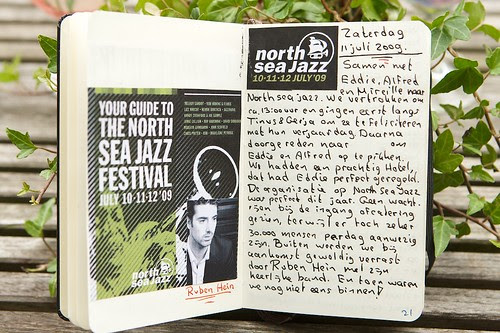 YOUR GUIDE TO
THE NORTH
SEA JAZZ
FESTIVAL
JULY 10·11·12 '09
north
sea Jazz
Ruben Hein
north
sea Jazz
10·11·12 JULY '09
Zaterdag
11 juli 2009.
Samen met
Eddie, Alfred
en Mireille naar
North sea jazz. We vertrokken om
ca. 13:00 uur en gingen eerst langs
Tinus & Gerja om ze te feliciteren
met hun verjaardag. Daarna
doorgereden naar om
Eddie en Alfred op te pikken.
We hadden een prachtig Hotel,
dat had Eddie perfect geregeld.
De organisatie op North Sea Jazz
was perfect dit jaar. Geen wacht-
rijen bij de ingang of catering
gezien, terwijl er toch zeker
30.000 mensen per dag aanwezig
zijn. Buiten werden we bij
aankomst geweldig verrast
door Ruben Hein met zijn
heerlijke band. En toen waren
we nog niet eens binnen!
21